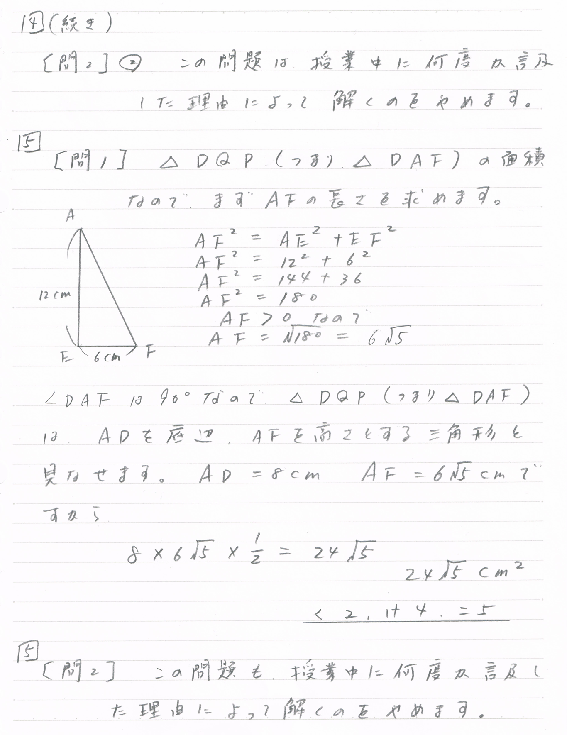 4 (続き)
[問2] ② この問題は、授業中に何度か言及
した理由によって解くのをやめます。
5
[問1] △DQP (つまり、△DAF) の面積
なので、まず AFの長さを求めます。
A
AF² = AE² + EF²
AF² = 12² + 6²
12cm
AF² = 144 + 36
AF² = 180
AF > 0 なので
AF = √180 = 6√5
E 6cm F
∠DAF は 90° なので △DQP (つまり △DAF)
は、ADを底辺、AFを高さとする三角形と
見なせます。 AD = 8cm AF = 6√5 cm で
すから
8 × 6√5 × 1/2 = 24√5
24√5 cm²
く 2, け 4, こ 5
5
[問2] この問題も、授業中に何度か言及し
た理由によって解くのをやめます。